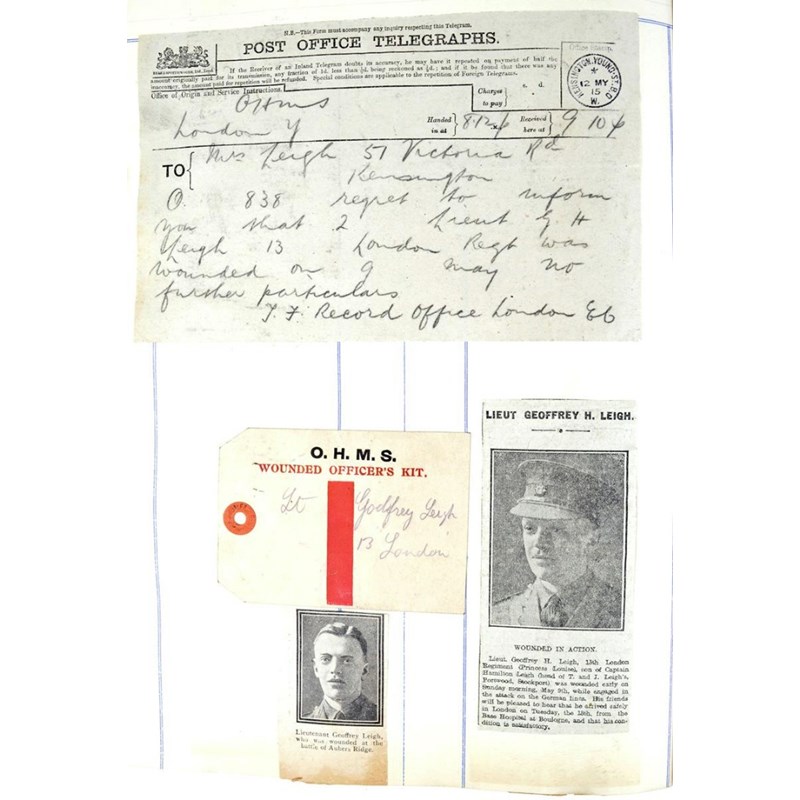 N.B.—This Form must accompany any inquiry respecting this Telegram.
POST OFFICE TELEGRAPHS.
If the Receiver of an Inland Telegram doubts its accuracy, he may have it repeated on payment of half the
amount originally paid for its transmission, any fraction of 1d. less than ½d. being reckoned as ½d.; and if it be found that there was any
inaccuracy, the amount paid for repetition will be refunded. Special conditions are applicable to the repetition of Foreign Telegrams.
Office of Origin and Service Instructions.
Charges to pay
s. d.
Office Stamp.
KENSINGTON. YOUNG ST. B.O
12 MY
15
W.
OHMS
London Y
Handed in at
8.12
Received here at
9 10
TO
Mrs Leigh 57 Victoria Rd
Kensington
O. 838 regret to inform
you that 2 Lieut G. H
Leigh 13 London Regt was
wounded on 9 may no
further particulars
T. F. Record Office London EC
O. H. M. S.
WOUNDED OFFICER'S KIT.
Lt Godfrey Leigh
13 London
Lieutenant Geoffrey Leigh,
who was wounded at the
battle of Aubers Ridge.
LIEUT GEOFFREY H. LEIGH.
WOUNDED IN ACTION.
Lieut. Geoffrey H. Leigh, 13th London
Regiment (Princess Louise), son of Captain
Hamilton Leigh (head of T. and J. Leigh's,
Portwood, Stockport) was wounded early on
Sunday morning, May 9th, while engaged in
the attack on the German lines. His friends
will be pleased to hear that he arrived safely
in London on Tuesday, the 18th, from the
Base Hospital at Boulogne, and that his con-
dition is satisfactory.